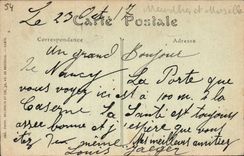 54
Meurthe et Moselle
Le 23 Oct 17
Carte Postale
Correspondance
Adresse
Un grand Bonjour
de Nancy La Porte que
vous voyez ici est à 100 m. à la
Caserne La Santé est toujours
assez bonne et j'espère que vous
êtes de même Mes meilleurs amitiés
Louis Jaeger